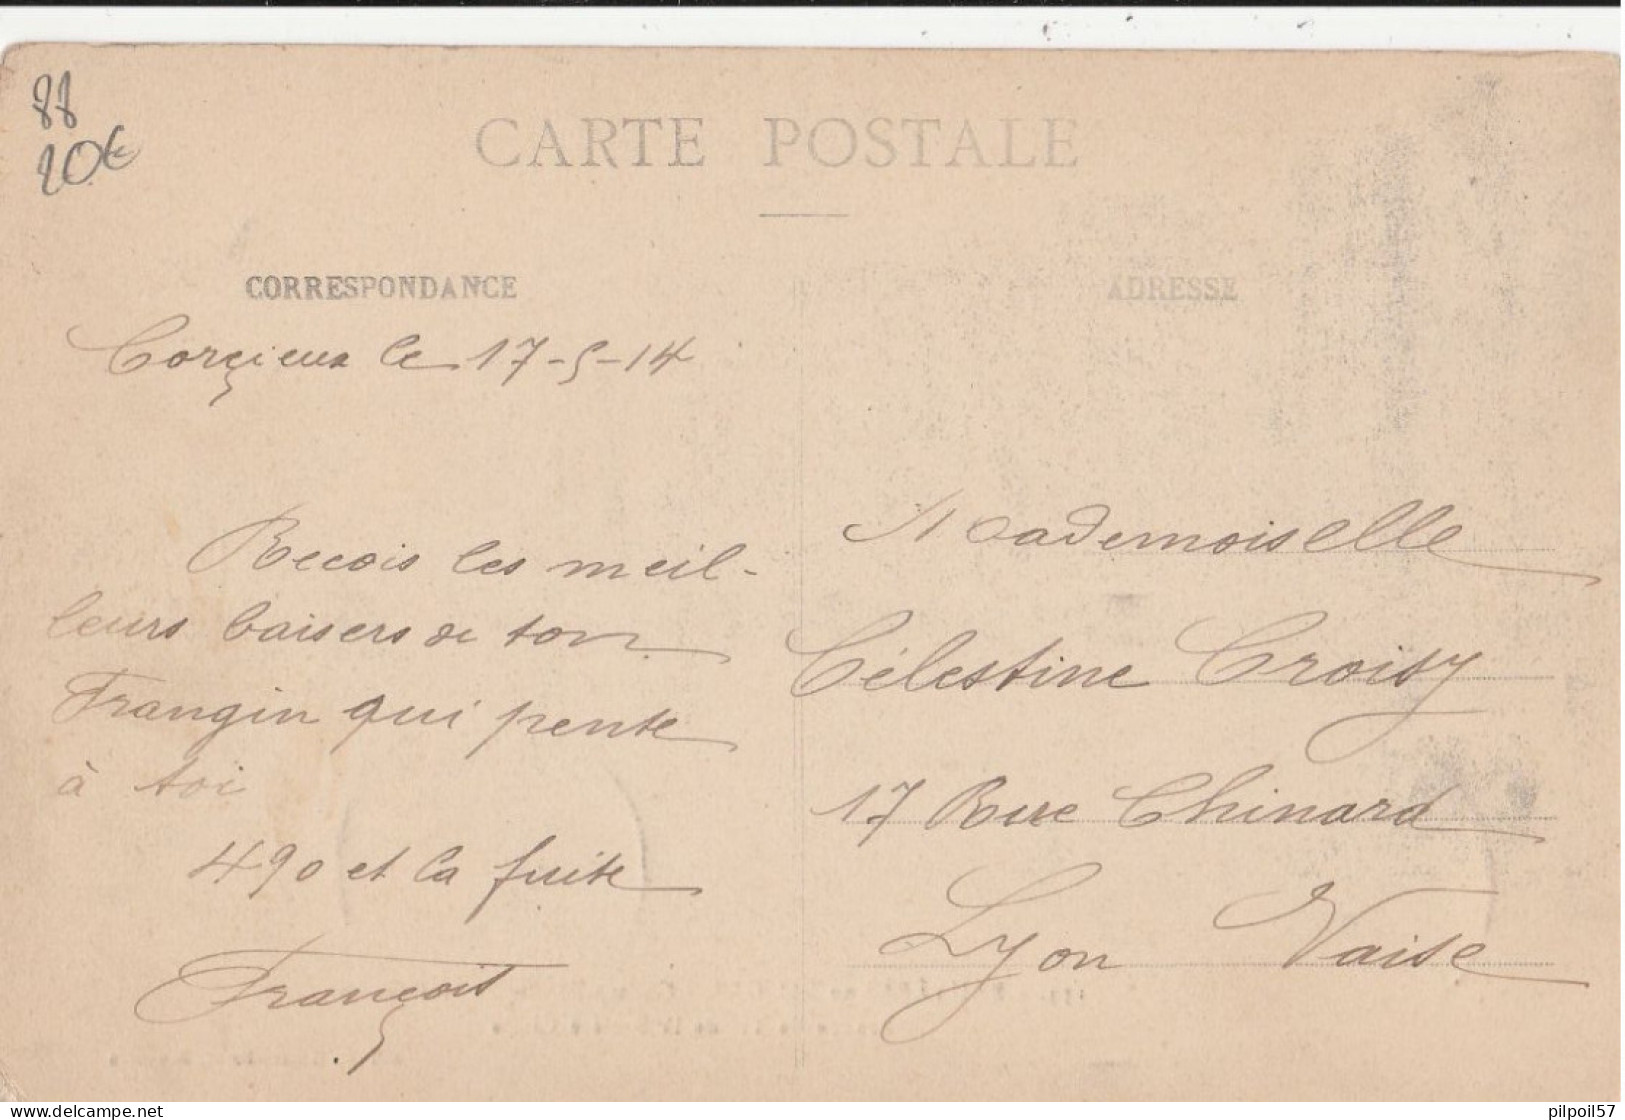 88
20€
CARTE POSTALE
CORRESPONDANCE
ADRESSE
Corçieux le 17-5-14
Recois les meil-
leurs baisers de ton
Frangin qui pente
à toi
490 et la fuite
François
Mademoiselle
Célestine Croisy
17 Rue Chinard
Lyon Vaise
delcampe.net
pilpoil57